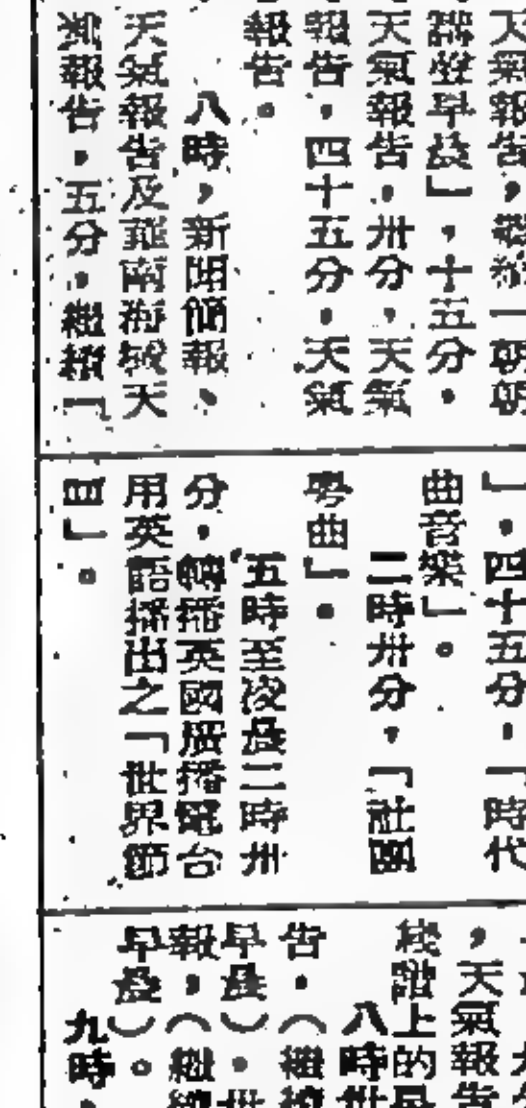 天氣報告，繼續「朝朝
諧聲早晨」，十五分，
天氣報告，卅分，天氣
報告，四十五分，天氣
報告。
八時，新聞簡報、
天氣報告及華南海域天
氣報告，五分，繼續「
」，四十五分，「時代
曲音樂」。
二時卅分，「社團
粵曲」。
五時至凌晨二時卅
分，轉播英國廣播電台
用英語播出之「世界節
目」。
，天氣報告
綫譜上的早
八時卅
告，（繼續
早晨）。卅
報，（繼續
早晨）。
九時，